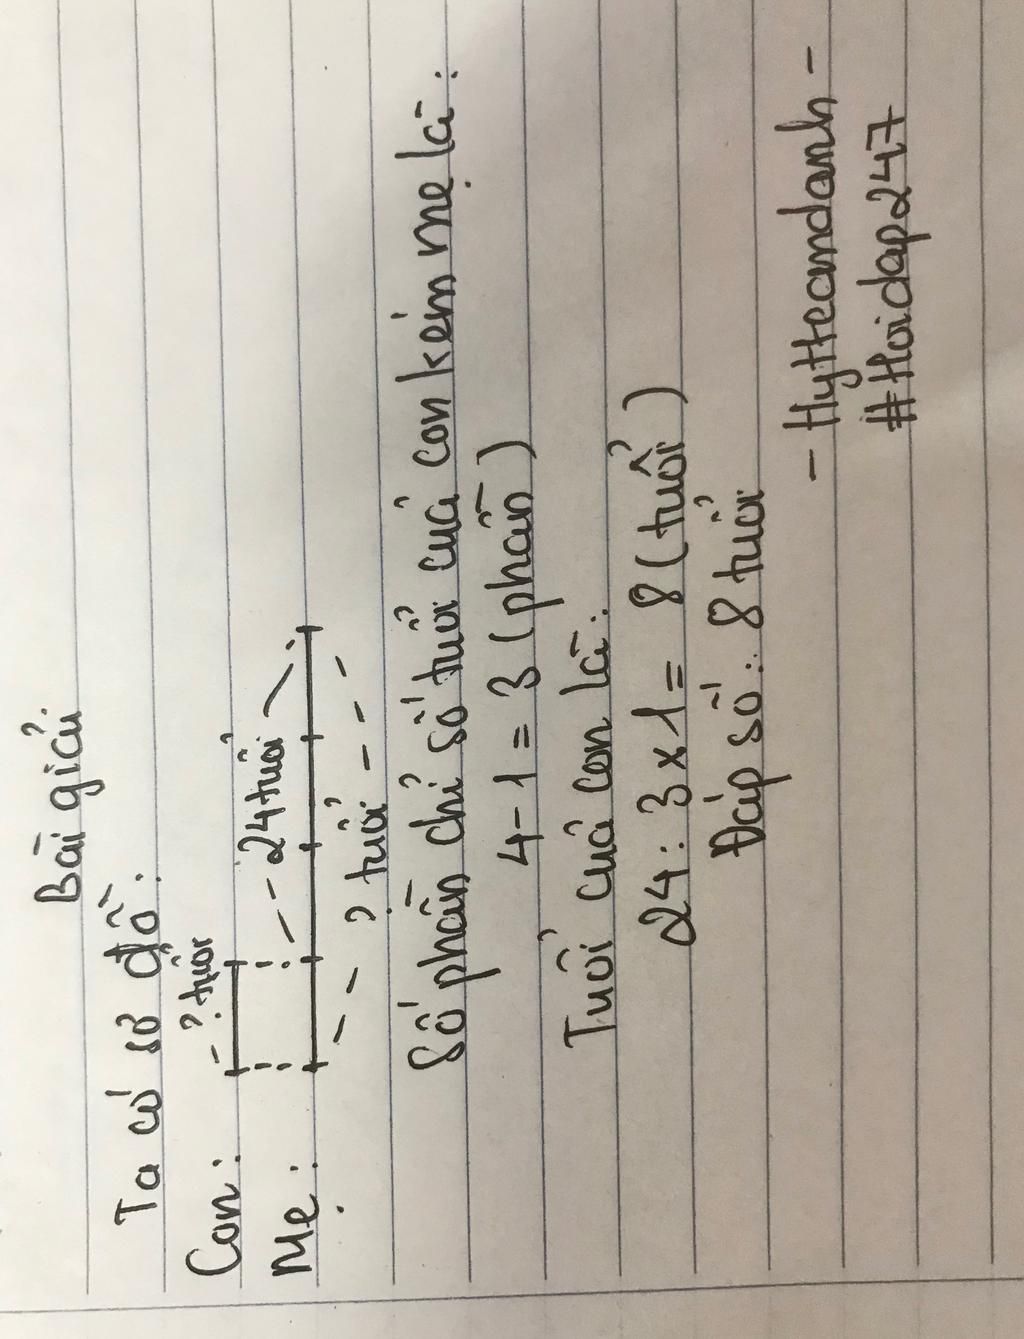 Bài giải
Ta có sơ đồ:
? tuổi
Con:
24 tuổi
Mẹ:
? tuổi
Số phần chỉ số tuổi của con kém mẹ là:
4-1 = 3 (phần)
Tuổi của con là:
24 : 3 x 1 = 8 (tuổi)
Đáp số: 8 tuổi
- Hytteamdanh -
#Hoidap247